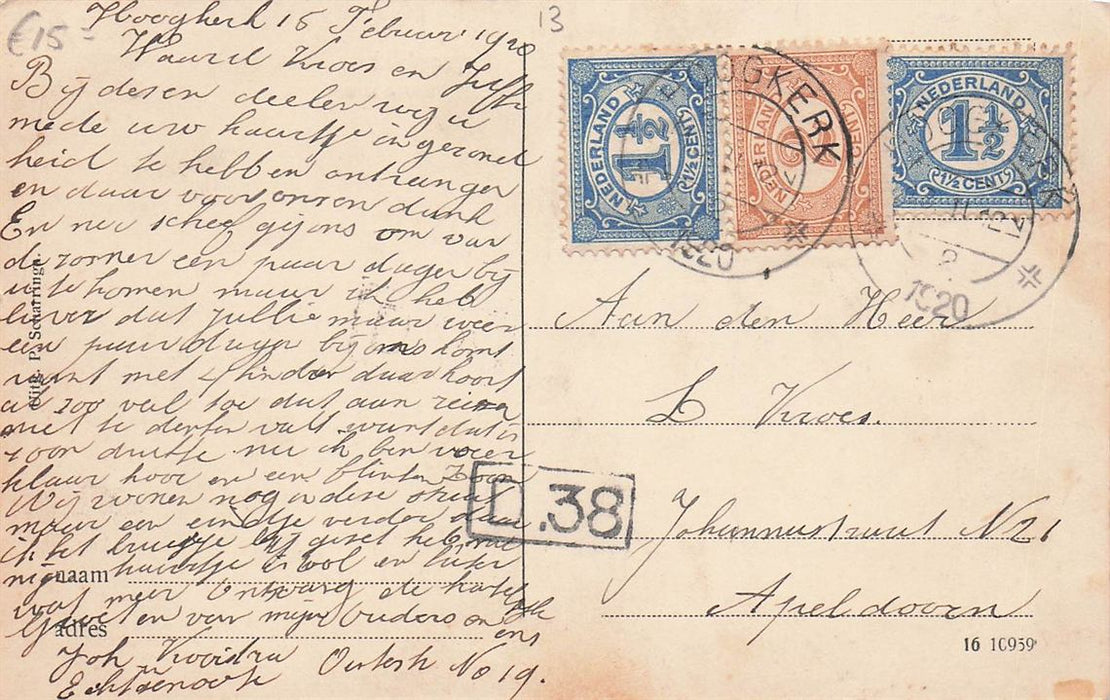 €15-
13
Hoogkerk 16 Februari 1920
Waarde Kroes en
Bij desen deelen wij u
mede uw kaartje in gezond
heid te hebben ontvangen
en daar voor onsen dank
En nu schreef gij ons om van
de zomer een paar dagen bij
u te komen maar ik heb
liever dat jullie maar weer
een paar dagen bij ons komt
want met 4 kinder daar hoort
al zoo veel toe dat aan reizen
niet te denken valt want dat is
zoon drukte nu ik ben weer
klaar hoor en een flinken Zoon
Wij wonen nog in dese straat
maar een eindtje verder
ik het kruisje bij geset heb
huurtje is wel en
wat meer Ontvang de hartelijke
Groeten van mijn Ouders en ons
Joh
Echtgenoote No 19.
Uitg. P. Scharringa.
naam
adres
NEDERLAND
1½
1½ CENT
NEDERLAND
2
CENT
NEDERLAND
1½
1½ CENT
HOOGKERK
1920
HOOGKERK
2
1920
D.38
Aan den Heer
L Kroes.
Johannastraat N 21
Apeldoorn
16 10959